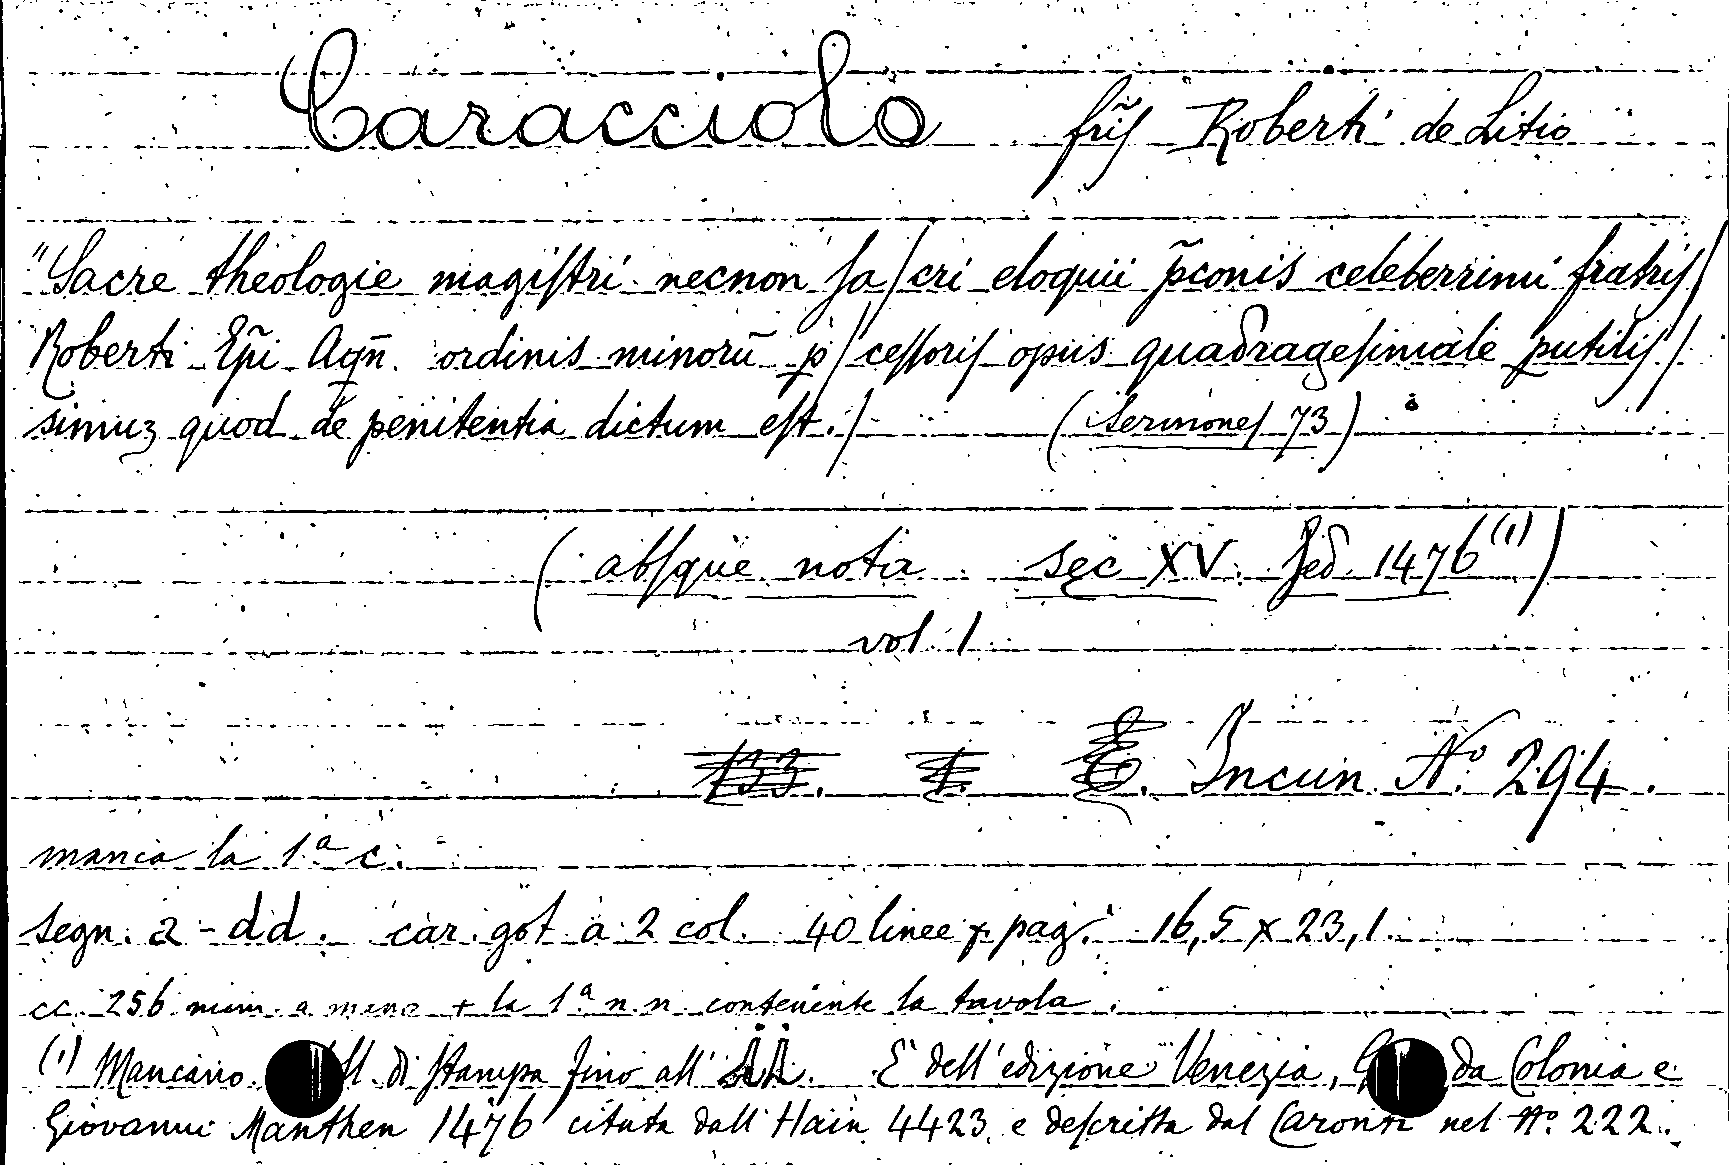 Caracciolo fr̃is Roberti de Litio
"Sacre theologie magistri necnon sa/cri eloquii p̃conis celeberrimi fratris/
Roberti Ep̃i Aqñ. ordinis minorũ p/cessoris opus quadragesimale putilis/
simuz quod de penitentia dictum est./ (Sermones 73)
(absque nota sec XV. sed. 1476 (1))
vol. 1
133. Incun. Nº. 294.
manca la 1.ª c.
segn. a - dd. car. got. a 2 col. 40 linee p. pag. 16,5 x 23,1.
cc. 256 num. a mano + la 1ª n. n. contenente la tavola.
(1) Mancano di stampa fino all' E' dell'edizione Venezia, da Colonia e
Giovanni Manthen 1476 citata dall'Hain 4423. e descritta dal Caronti nel Nº. 222.